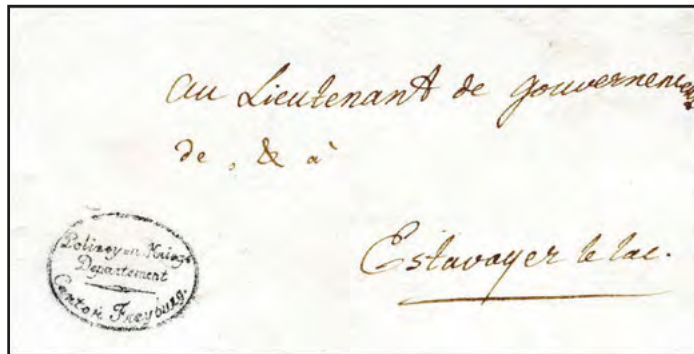 Au Lieutenant de Gouvernement
de, & à
Estavayer le lac.
Polizey en Kriegs
Departement
Canton Freyburg.